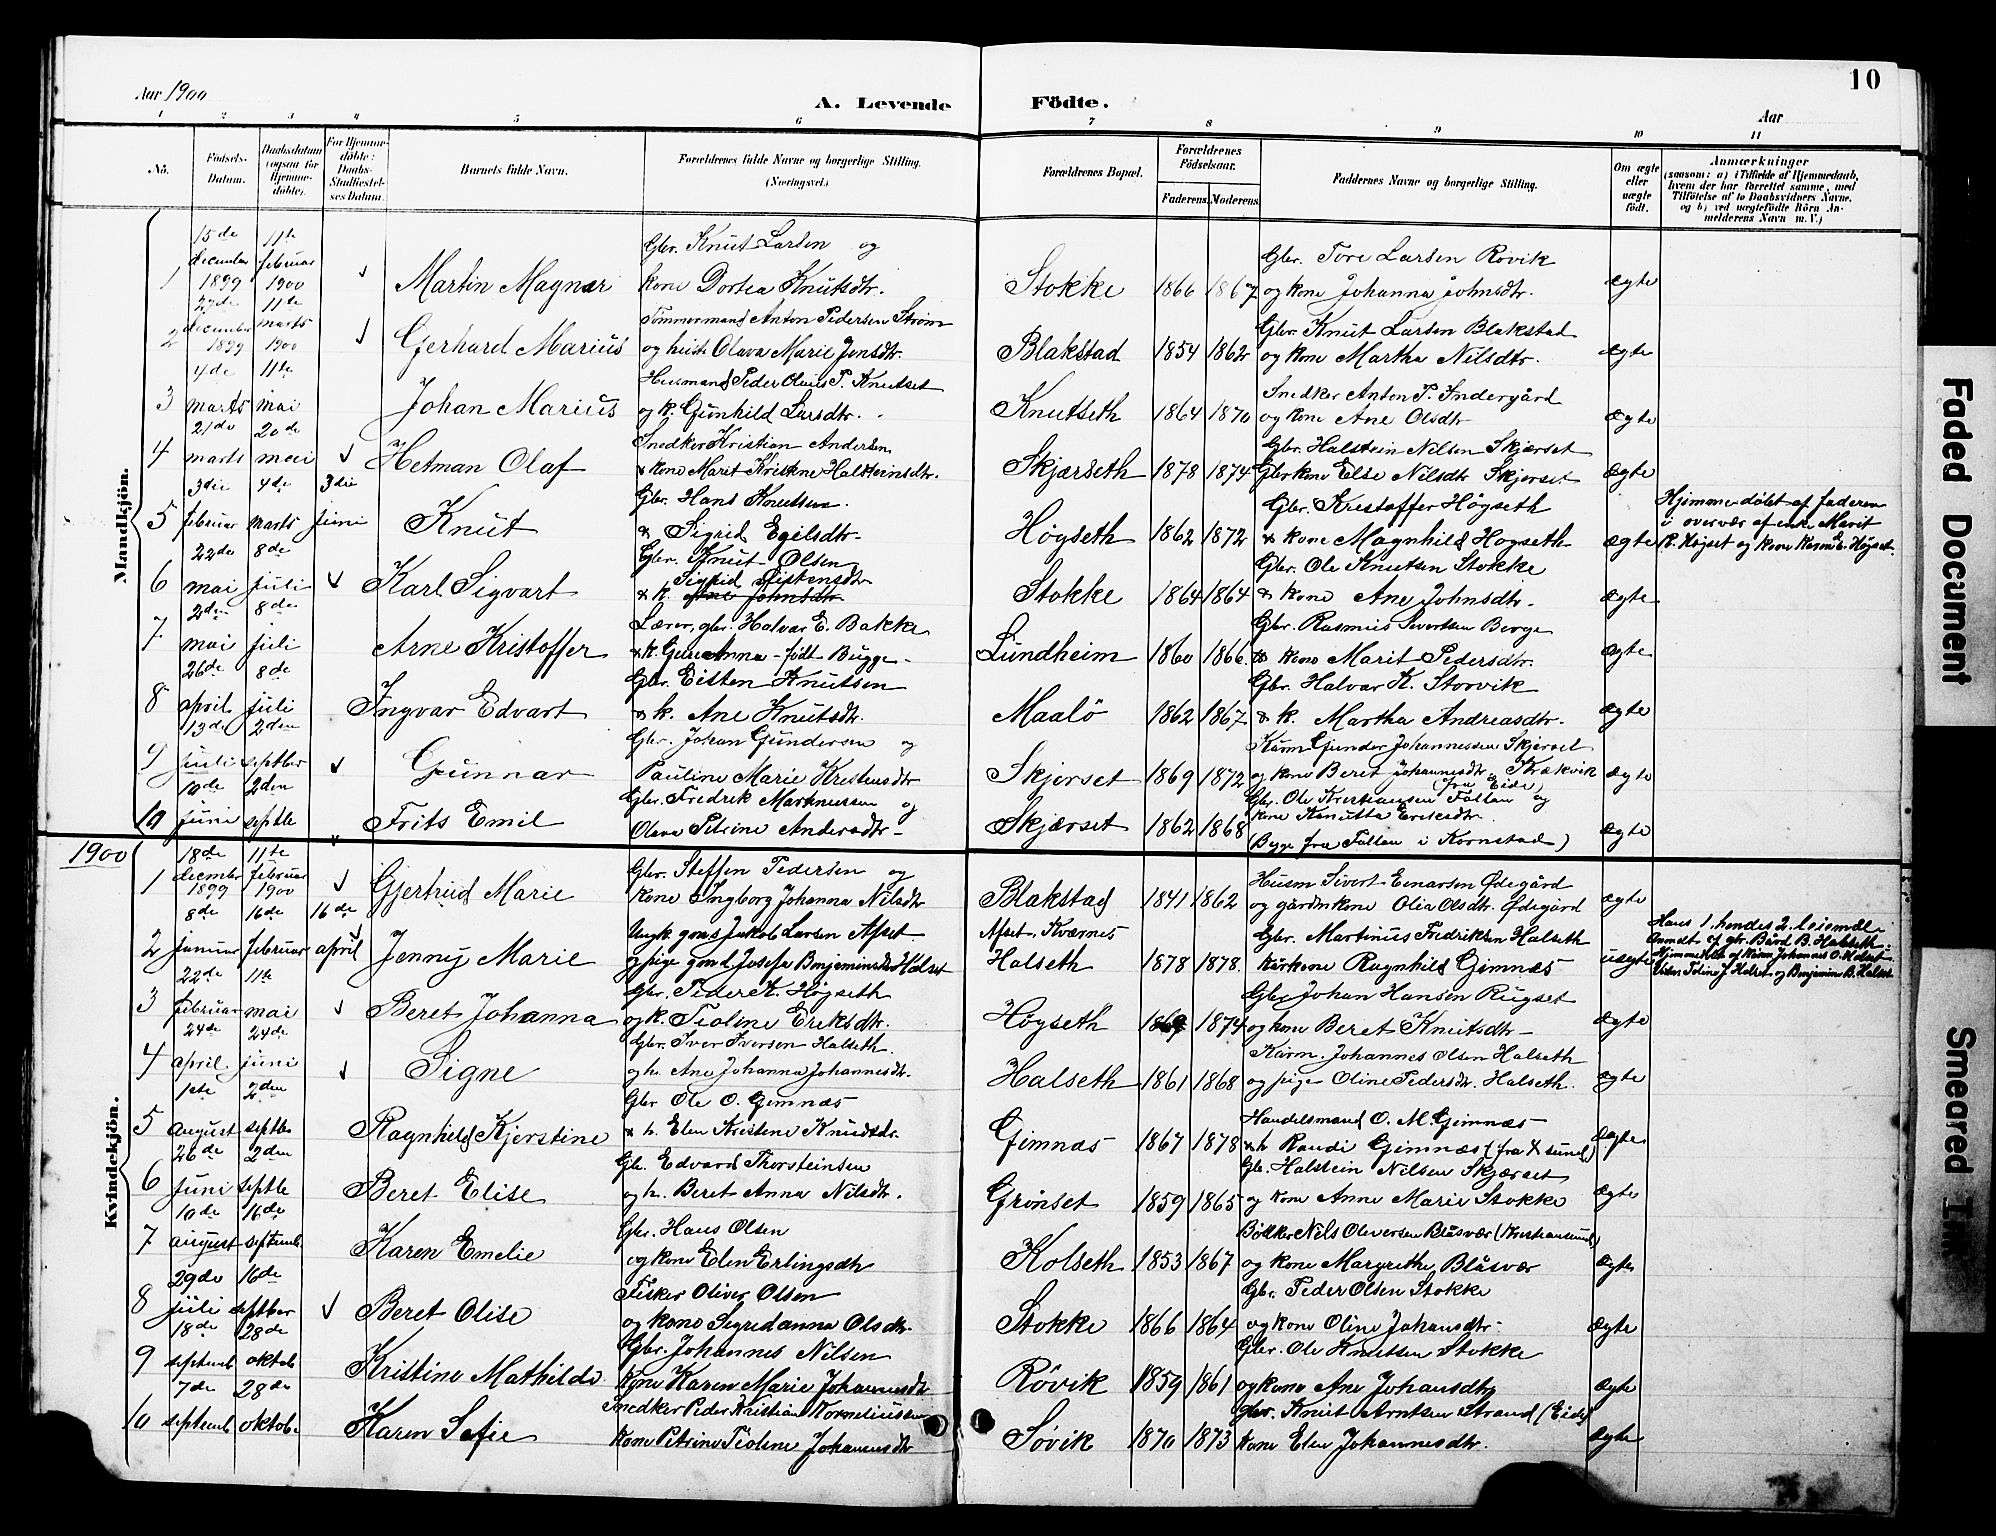 Aar 1900
A. Levende Födte.
Aar
10
1 2 3 4 5 6 7 8 9 10 11
No.
Födsels-Datum.
Daabsdatum (ogsaa for Hjemme-döbte).
For Hjemme-döbte: Daabs-Stadfæstelses Datum.
Barnets fulde Navn.
Forældrenes fulde Navne og borgerlige Stilling. (Næringsvei.)
Forældrenes Bopæl.
Forældrenes Födselsaar.
Faderens Moderens
Faddernes Navne og borgerlige Stilling.
Om ægte eller uægte födt.
Anmærkninger
(saasom: a) i Tilfælde af Hjemmedaab,
hvem der har forrettet samme, med
Tilföielse af to Daabsvidners Navne,
og b) ved uægtefödte Börn An-
melderens Navn m. V.)
Mandkjön.
1 15de december 1899 11te februar 1900 Martin Magnar Gbr. Knut Larsen og kone Dortea Knutsdtr. Stokke 1866 1867 Gbr. Tore Larsen Rövik og kone Johanna Johnsdtr. ægte
2 27de december 1899 11te marts 1900 Gjerhard Marius Tömmermand Anton Pedersen Ström og hust. Olava Marie Jonsdtr. Blakstad 1854 1862 Gbr. Knut Larsen Blakstad og kone Martha Nilsdtr. ægte
3 4de marts 11te mai Johan Marius Husmand Peder Oluis P. Knutset og k. Gunhild Larsdtr. Knutseth 1864 1870 Snedker Anton P. Indergård og kone Ane Olsdtr ægte
4 21de marts 20de mai Hetman Olaf Snedker Kristian Andersen & kone Marit Kristine Halsteinsdtr. Skjærseth 1878 1874 Gbr. Halstein Nilsen Skjærset Gbrkone Else Nilsdtr Skjerset ægte
5 3die februar 4de marts 3die juni Knut Gbr. Hans Knutsen & Sigrid Egilsdtr. Höyseth 1862 1872 Gbr. Kristoffer Höyseth & kone Magnhild Hoyseth ægte
Hjemmedöbt af faderen
i overvær af enke Marit
R. Höjset og kone Karen E. Höjset.
6 22de mai 8de juli Karl Sigvart Gbr. Knut Olsen & k. Sigrid Eistensdtr Stokke 1864 1864 Gbr. Ole Knutsen Stokke & kone Ane Johnsdtr. ægte
7 2den mai 8de juli Arne Kristoffer Lærer, gbr. Halvar E. Bakke & k. Gure Anna - födt Bugge - Lundheim 1860 1866 Gbr. Rasmus Sivertsen Berge & kone Marit Pedersdtr. ægte
8 26de april 8de juli Ingvar Edvart Gbr. Eisten Knutsen & k. Ane Knutsdtr. Maalö 1862 1867 Gbr. Halvar K. Storvik & k. Martha Andreasdtr. ægte
9 13de juli 2den septber Gunnar Gbr. Johan Gundersen og Pauline Marie Kristensdtr Skjerset 1869 1872 Kårm Gunder Johannessen Skjerset og kone Beret Johannesdtr. Krakvik (fra Eide) ægte
10 10de juni 2den septbr Frits Emil Gbr. Fredrik Martinussen og Olava Petrine Andersdtr - Skjærset 1862 1868 Gbr. Ole Kristiansen Foltan og kone Knutta Eriksdtr. (Begge fra Foltan i Kornstad) ægte
1900
Kvindekjön.
1 18de december 1899 11te februar 1900 Gjertrud Marie Gbr. Steffen Pedersen og kone Ingborg Johanna Nilsdtr Blakstad 1841 1862 Husm Sivert Einarsen Ödegård og gårdmkone Olia Olsdtr. Ödegård ægte
2 8de januar 16de februar 16de april Jenny Marie Ungk. gmd Jakob Larsen Afset og pige gmd Josefa Benjaminsdtr Halset Afset. Kværnes Halseth 1878 1878 Gbr. Martinus Fredriksen Halseth Kårkone Ragnhild Gimnæs uægte
Hans 1. hendes 2. leiemål.
Anmdt. af gbr. Bård B. Halseth.
Hjemmedöbt af Kårm Johannes O. Halset
Vidner Toline J. Halset og Benjamin B. Halset
3 22de februar 11te mai Beret Johanna Gbr. Peder K. Höyseth og k. Tioline Eriksdtr. Höyseth 1869 1874 Gbr Johan Hansen Rugset og kone Beret Knutsdtr - ægte
4 24de april 24de juni Signe Gbr. Iver Iversen Halseth. og h. Ane Johanna Johannesdtr. Halseth 1861 1868 Kårm. Johannes Olsen Halseth og pige Oline Pedersdtr. Halseth. ægte
5 1ste august 2den septbr Ragnhild Kjerstine Gbr Ole O. Gimnæs & h. Elen Kristine Knudsdr. Gimnæs 1867 1878 Handelsmand O. M. Gimnæs & h Randi Gimnæs (fra Xsund) ægte
6 26de juni 2den septbr Beret Elise Gbr. Edvard Thorsteinsen og h. Beret Anna Nilsdtr. Grönset 1859 1865 Gbr. Halstein Nilsen Skjærset og kone Anne Marie Stokke ægte
7 10de august 16de septemb. Karen Emelie Gbr. Hans Olsen og kone Elen Erlingsdtr Kolseth 1853 1867 Bödker Nils Oliversen Blåsvær (Kristiansund) og kone Margrethe Blåsvær ægte
8 29de juli 16de septber Beret Olise Fisker Oliver Olsen og kone Sigridanna Olsdtr. Stokke 1866 1864 Gbr. Peder Olsen Stokke og kone Oline Johansdtr. ægte
9 18de septemb 28de oktob Kristine Mathilde Gbr. Johannes Nilsen Kone Karen Marie Johannesdtr Rövik 1859 1861 Gbr. Ole Knutsen Stokke og kone Ane Johansdtr ægte
10 7de septemb 28de oktob. Karen Sofie Snedker Peder Kristian Korneliussen Kone Petrine Tioline Johannesdtr Sövik 1870 1873 gbr. Knut Arntsen Strand (Eide) kone Elen Johannesdtr. ægte
Faded Document
Smeared Ink